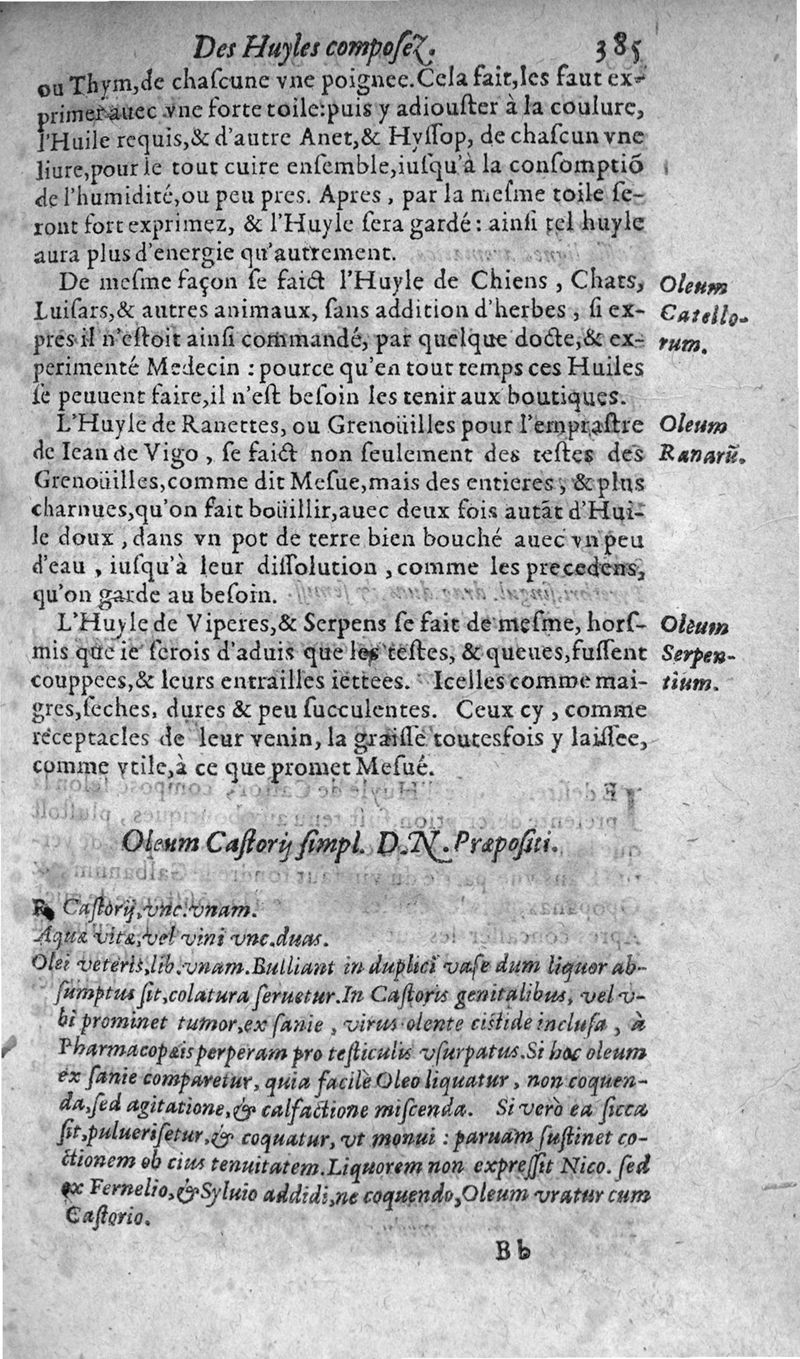 Des Huyles composeZ. 385
ou Thym,de chaſcune vne poignee.Cela fait,les faut ex-
primer auec vne forte toile:puis y adiouſter à la coulure,
l'Huile requis,& d'autre Anet,& Hyſſop, de chaſcun vne
liure,pour le tout cuire enſemble,iuſqu'à la conſomptiō
de l'humidité,ou peu pres. Apres , par la meſme toile ſe-
ront fort exprimez, & l'Huyle ſera gardé : ainſi tel huyle
aura plus d'energie qu'autrement.
De meſme façon ſe faict l'Huyle de Chiens , Chats,
Oleum
Luiſars,& autres animaux, ſans addition d'herbes , ſi ex-
Catello-
pres il n'eſtoit ainſi commandé, par quelque docte,& ex-
rum.
perimenté Medecin : pource qu'en tout temps ces Huiles
ſe peuuent faire,il n'eſt beſoin les tenir aux boutiques.
L'Huyle de Ranettes, ou Grenoüilles pour l'emplaſtre
Oleum
de Iean de Vigo , ſe faict non ſeulement des teſtes des
Ranarū.
Grenoüilles,comme dit Meſue,mais des entieres , & plus
charnues,qu'on fait boüillir,auec deux fois autāt d'Hui-
le doux , dans vn pot de terre bien bouché auec vn peu
d'eau , iuſqu'à leur diſſolution , comme les precedens,
qu'on garde au beſoin.
L'Huyle de Viperes,& Serpens ſe fait de meſme, horſ-
Oleum
mis que ie ſerois d'aduis que les teſtes, & queues,fuſſent
Serpen-
couppees,& leurs entrailles iettees. Icelles comme mai-
tium.
gres,ſeches, dures & peu ſucculentes. Ceux cy , comme
réceptacles de leur venin, la graiſſe toutesfois y laiſſee,
comme vtile,à ce que promet Meſué.
Oleum Caſtorij ſimpl. D. N. Præpoſiti.
℞ Caſtorij,vnc.vnam.
Aquæ vitæ,vel vini vnc.duas.
Olei veteris,lib.vnam.Bulliant in duplici vaſe dum liquor ab-
ſumptus ſit,colatura ſeruetur.In Caſtoris genitalibus, vel v-
bi prominet tumor,ex ſanie , virus olente ciſtide incluſa , à
Pharmacopæis perperam pro teſticulis vſurpatus.Si hoc oleum
ex ſanie comparetur, quia facilè Oleo liquatur , non coquen-
da,ſed agitatione,& calfactione miſcenda. Si verò ea ſicca
ſit,pulueriſetur,& coquatur, vt monui : paruam ſuſtinet co-
ctionem ob eius tenuitatem.Liquorem non expreſſit Nico. ſed
ex Fernelio,& Syluio addidi,ne coquendo,Oleum vratur cum
Caſtorio.
B b